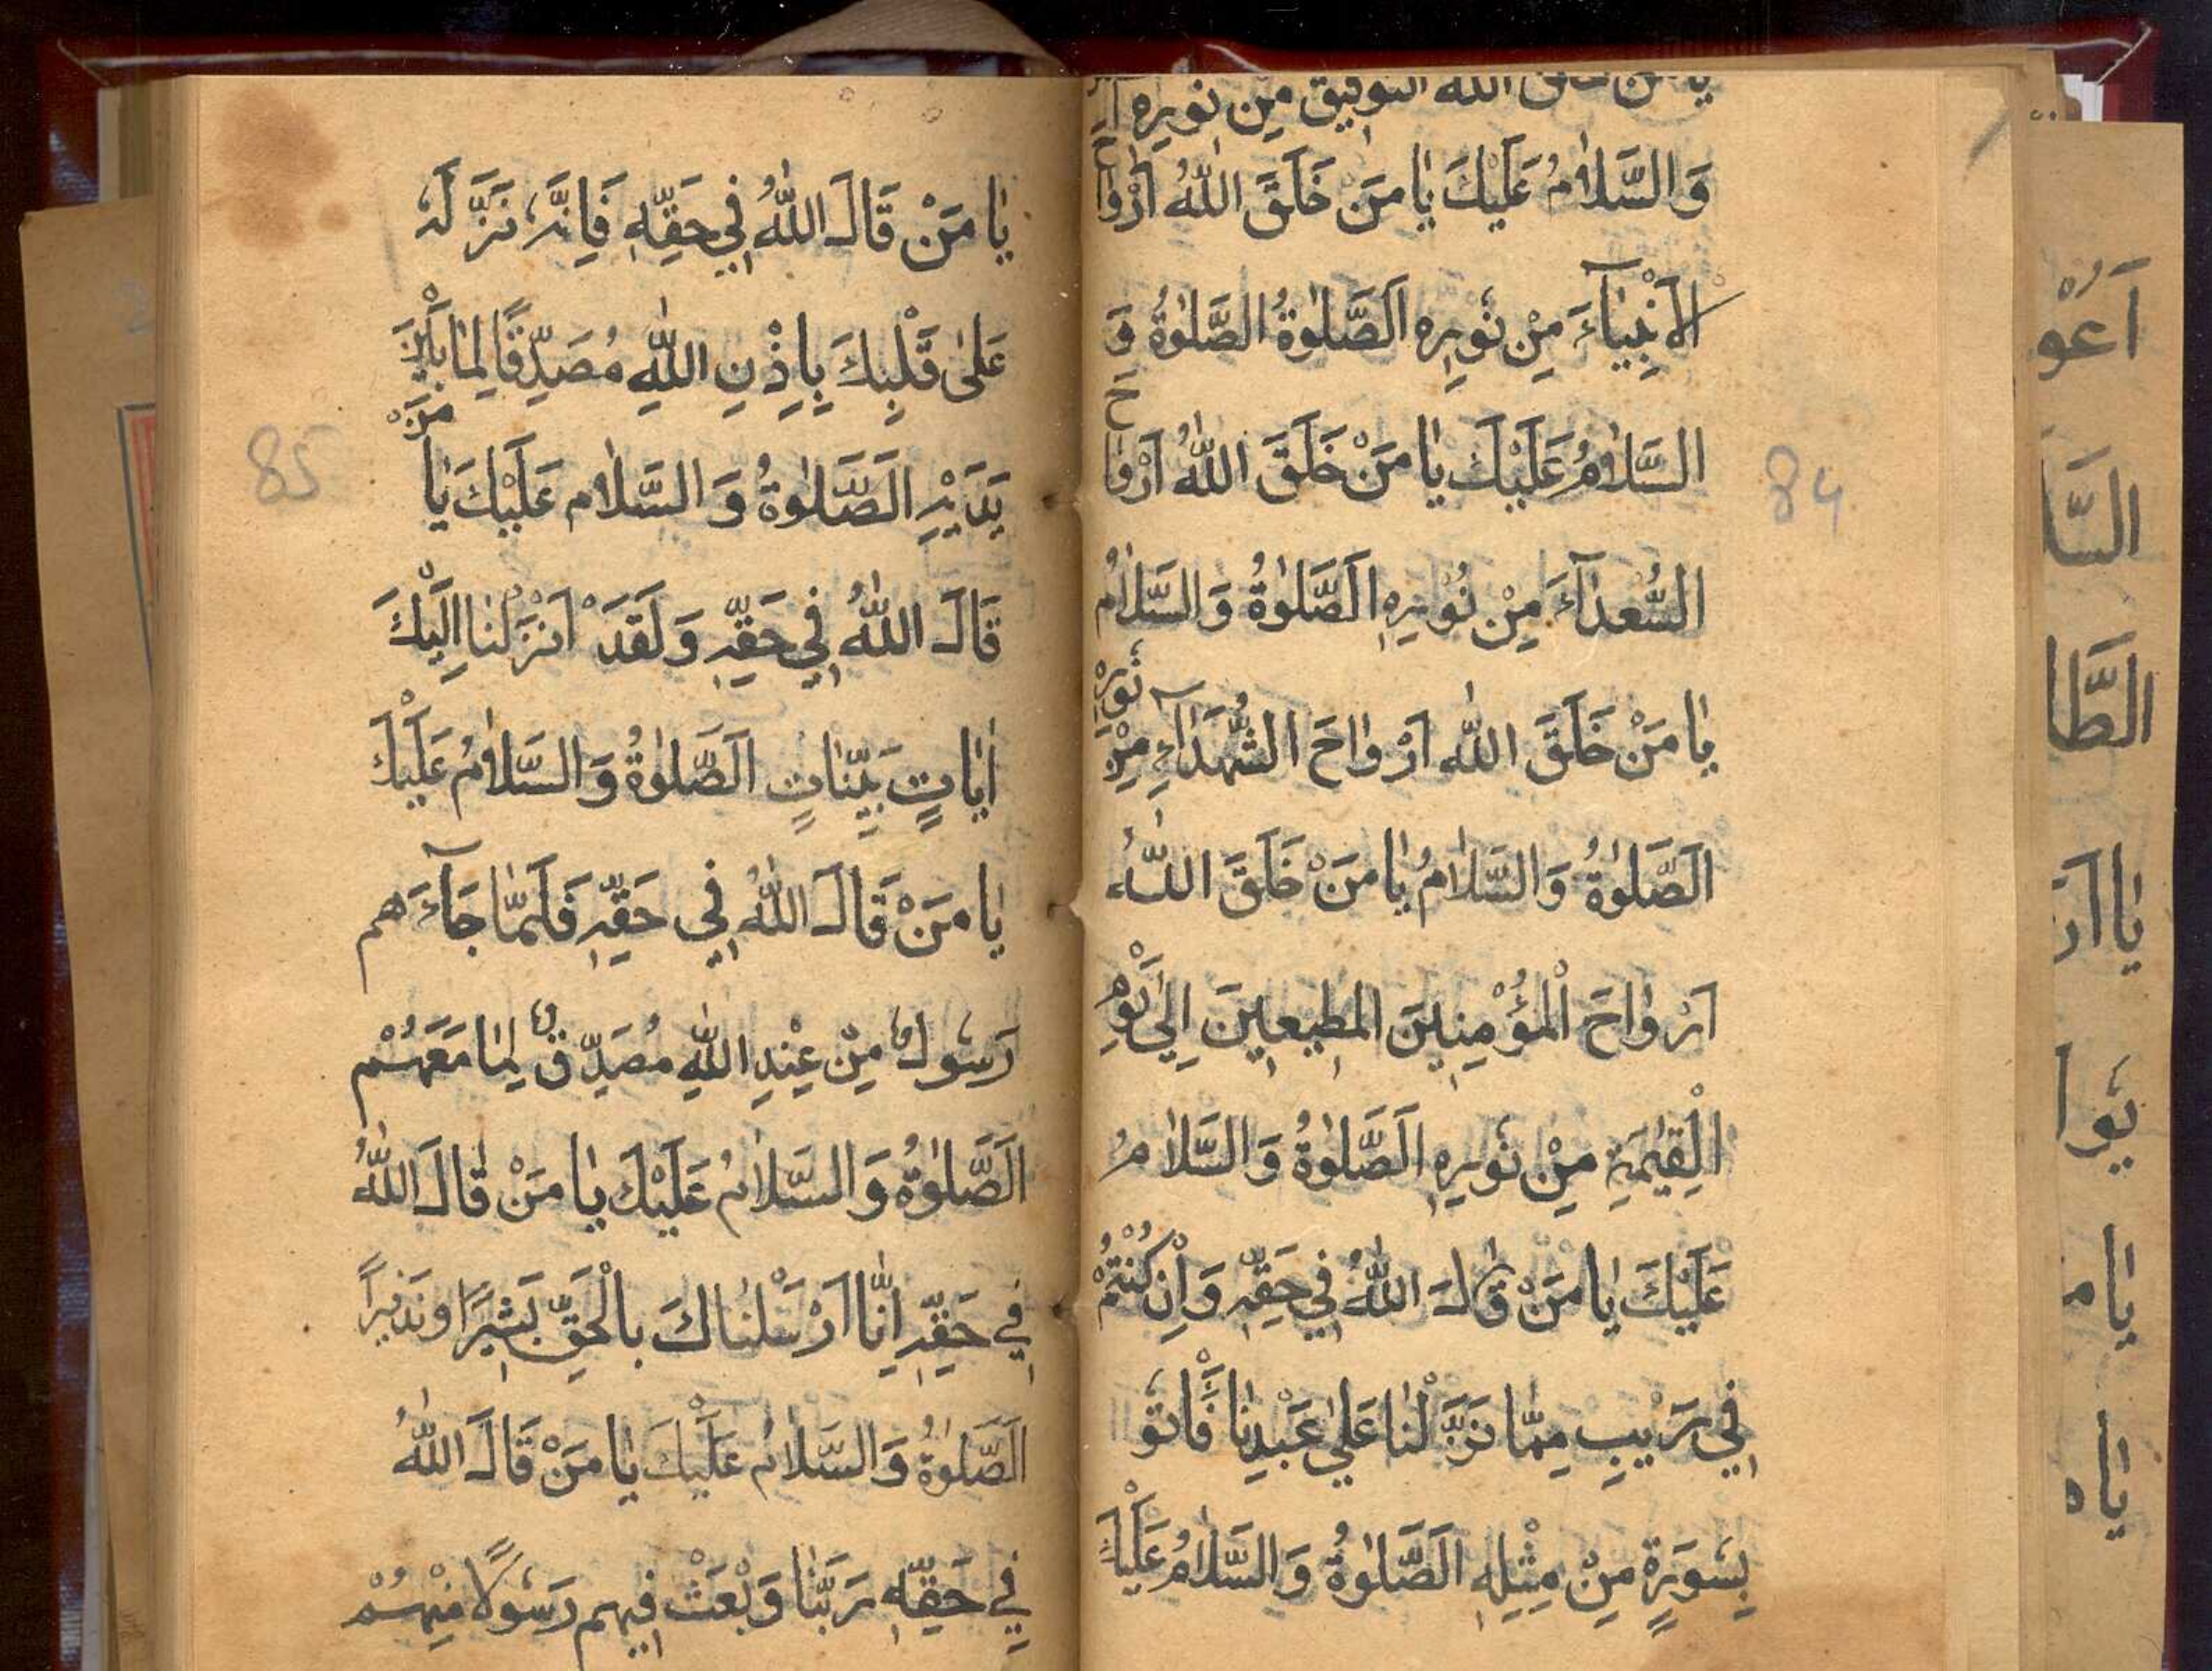 يا من خلق الله التوفيق مِن نوره
وَالسَّلَامُ عَلَيْكَ يَا مَن خَلَقَ اللهُ اَرْوَاحَ
الْاَنْبِيَآءَ مِنْ نُورِهِ اَلصَّلٰوةُ الصَّلٰوةُ وَ
السَّلَامُ عَلَيْكَ يَا مَنْ خَلَقَ اللهُ اَرْوَاحَ
السُّعَدَآءَ مِنْ نُورِهِ اَلصَّلٰوةُ وَالسَّلَامُ
يَا مَنْ خَلَقَ اللهُ اَرْوَاحَ الشُّهَدَآءِ مِنْ نُورِهِ
اَلصَّلٰوةُ وَالسَّلَامُ يَا مَنْ خَلَقَ اللهُ
اَرْوَاحَ الْمُؤْمِنِينَ المطِيعِينَ اِلٰى يَوْمِ
الْقِيٰمَةِ مِنْ نُورِهِ اَلصَّلٰوةُ وَالسَّلَامُ
عَلَيْكَ يَا مَنْ قَالَ اللهُ فِي حَقِّهِ وَاِنْ كُنْتُمْ
فِي رَيْبٍ مِمَّا نَزَّلْنَا عَلٰى عَبْدِنَا فَأْتُو
بِسُورَةٍ مِنْ مِثْلِهِ اَلصَّلٰوةُ وَالسَّلَامُ عَلَيْكَ
84
يَا مَنْ قَالَ اللهُ فِي حَقِّهِ فَاِنَّهُ نَزَّلَهُ
عَلٰى قَلْبِكَ بِاِذْنِ اللهِ مُصَدِّقًا لِمَا بَيْنَ
يَدَيْهِ اَلصَّلٰوةُ وَالسَّلَام عَلَيْكَ يَا مَنْ
قَالَ اللهُ فِي حَقِّهِ وَلَقَدْ اَنْزَلْنَا اِلَيْكَ
اٰيَاتٍ بَيِّنَاتٍ اَلصَّلٰوةُ وَالسَّلَامُ عَلَيْكَ
يَا مَنْ قَالَ اللهُ فِي حَقِّهِ فَلَمَّا جَآءَهم
رَسُولٌ مِنْ عِنْدِ اللهِ مُصَدِّقٌ لِمَا مَعَهُمْ
اَلصَّلٰوةُ وَالسَّلَامُ عَلَيْكَ يَا مَنْ قَالَ اللهُ
فِي حَقِّهِ اِنَّا اَرْسَلْنَاكَ بِالْحَقِّ بَشِيرًا وَنَذِيرًا
اَلصَّلٰوةُ وَالسَّلَامُ عَلَيْكَ يَا مَنْ قَالَ اللهُ
فِي حَقِّهِ رَبَّنَا وَبْعَثْ فِيهِم رَسُولًا مِنْهُمْ
85
اَعُو
السَّا
الطَّا
يَا اَر
يُوا
يَا م
يَا ه